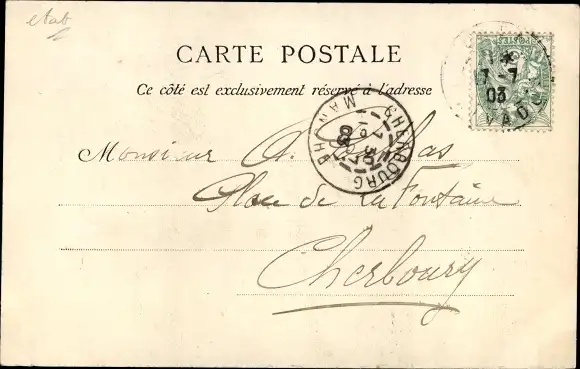 etab
CARTE POSTALE
Ce côté est exclusivement réservé à l'adresse
POSTES
7 - 7
03
CHERBOURG
MANCHE
Monsieur A.
Place de la Fontaine
Cherbourg